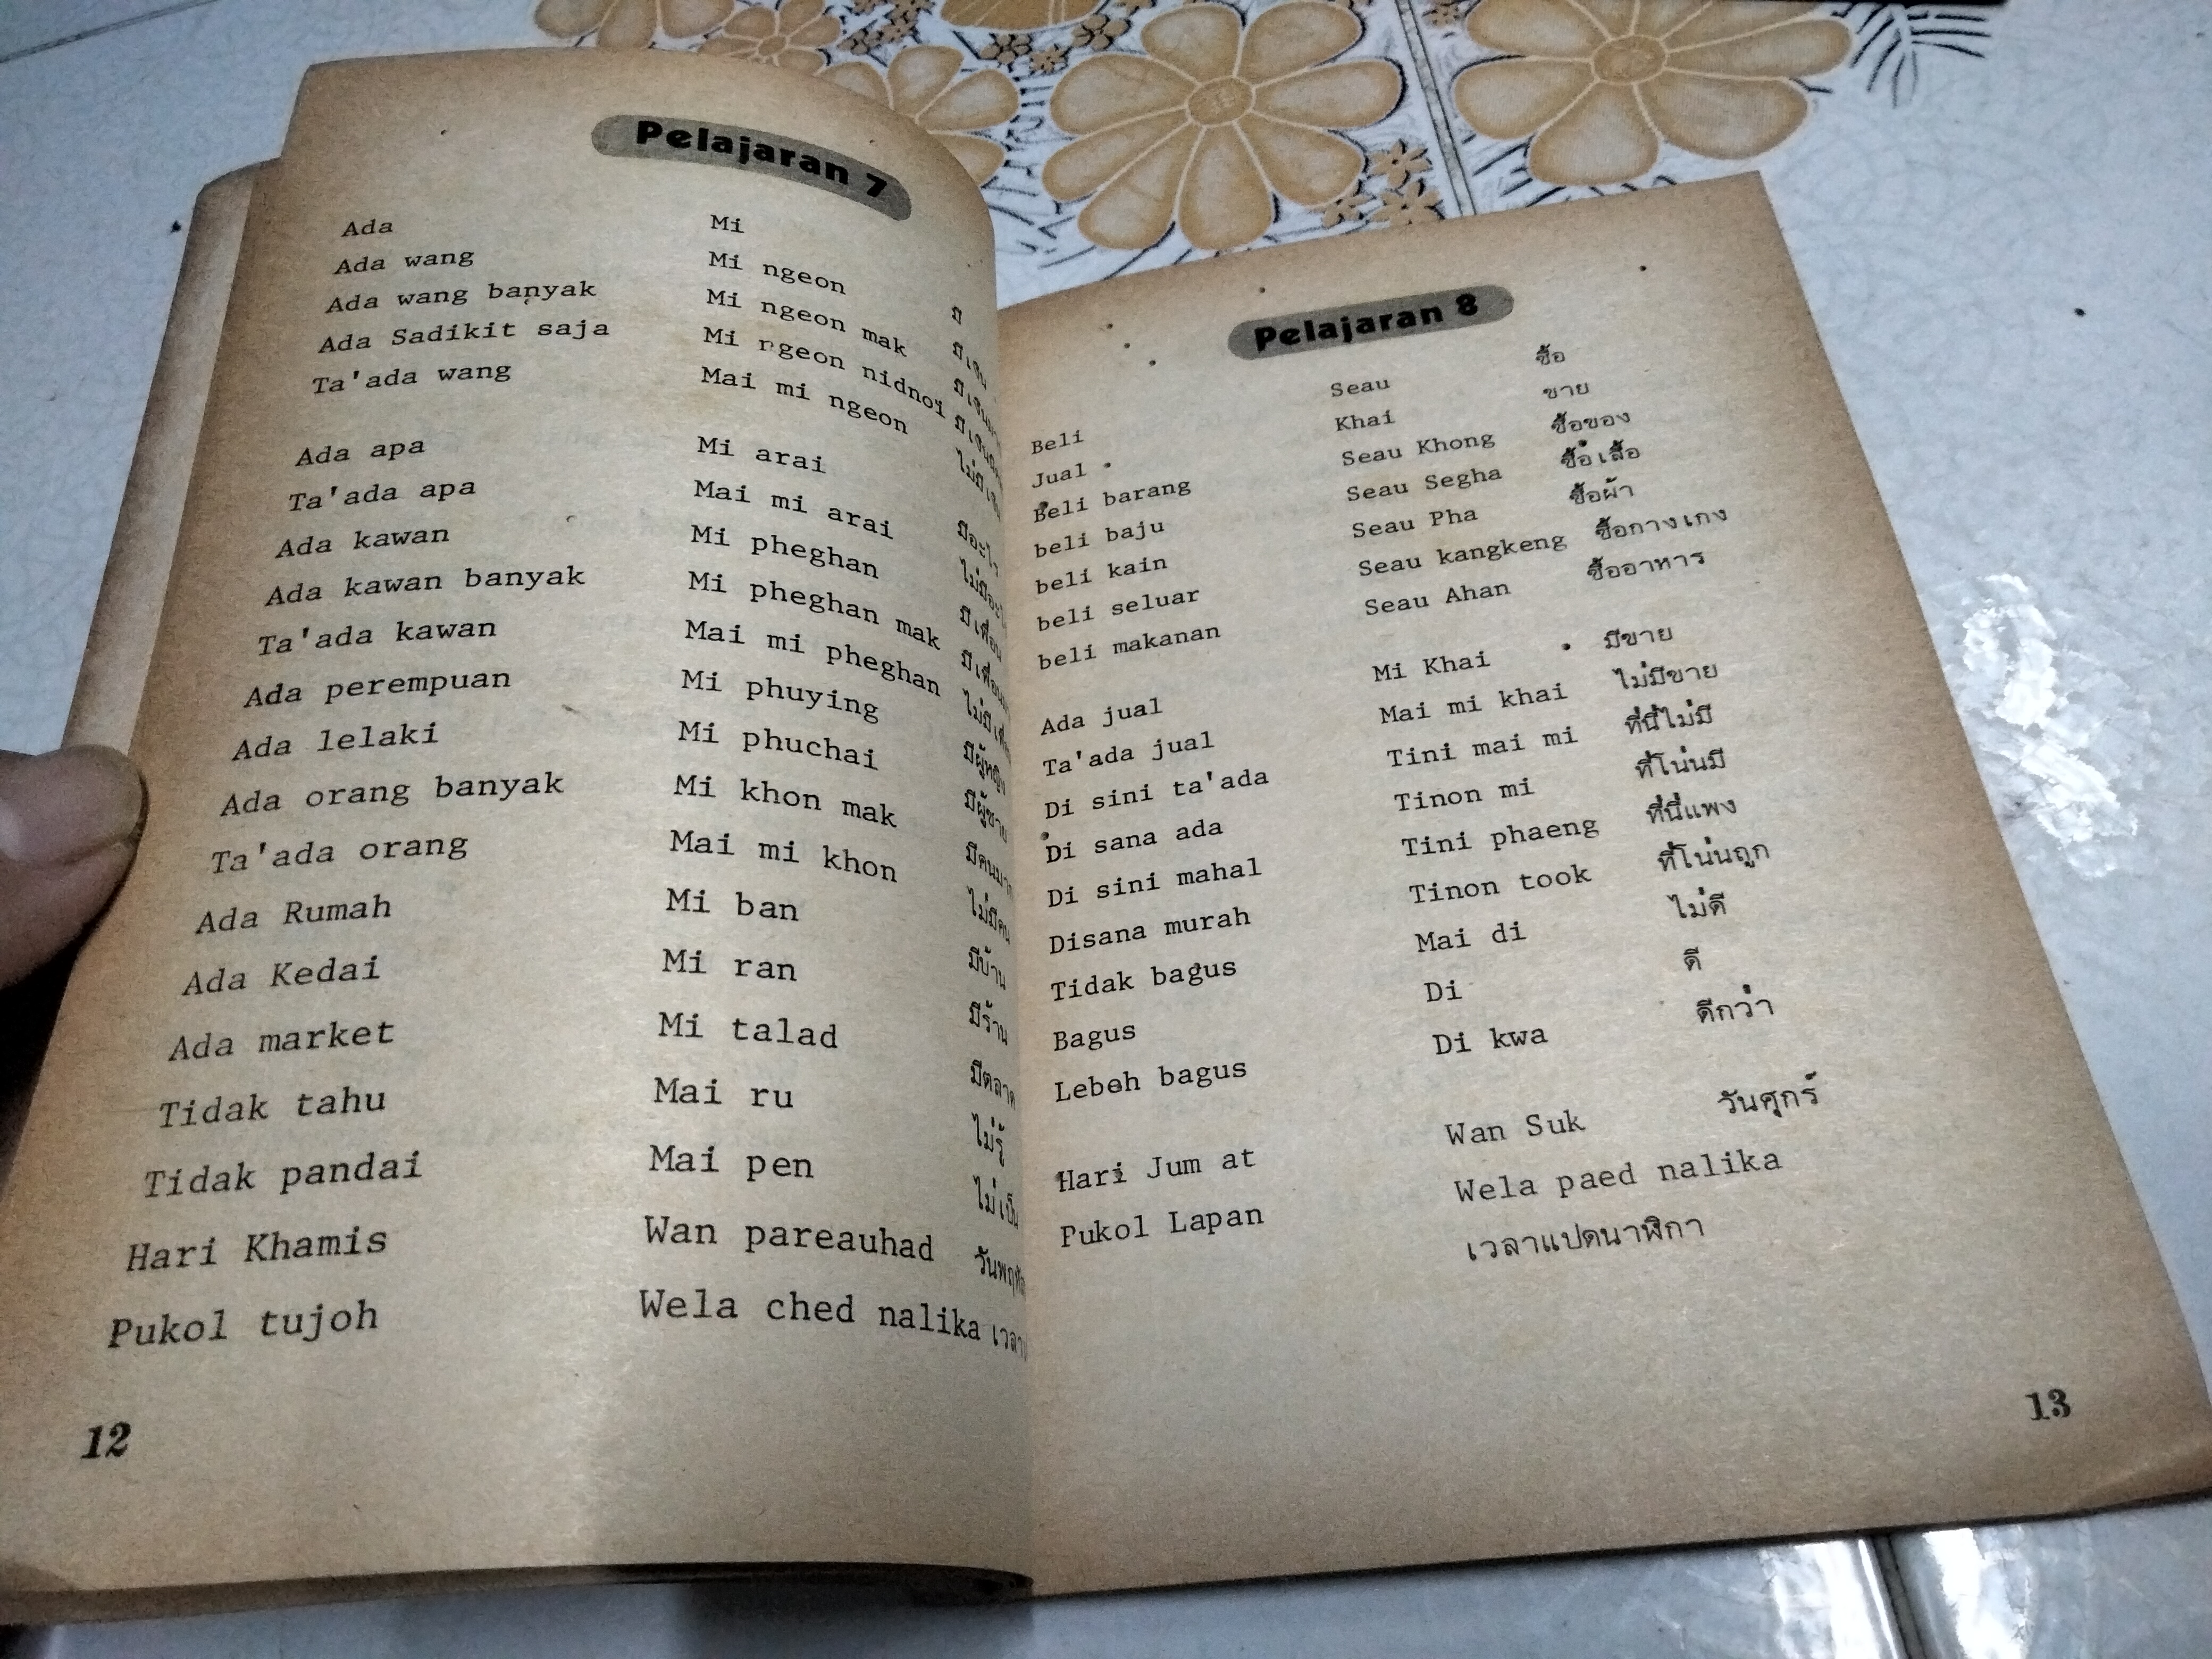 Pelajaran 7
Ada Mi มี
Ada wang Mi ngeon มีเงิน
Ada wang banyak Mi ngeon mak
Ada Sadikit saja Mi ngeon nidnoi
Ta'ada wang Mai mi ngeon
Ada apa Mi arai มีอะไร
Ta'ada apa Mai mi arai
Ada kawan Mi pheghan มีเพื่อน
Ada kawan banyak Mi pheghan mak
Ta'ada kawan Mai mi pheghan
Ada perempuan Mi phuying มีผู้หญิง
Ada lelaki Mi phuchai มีผู้ชาย
Ada orang banyak Mi khon mak
Ta'ada orang Mai mi khon ไม่มีคน
Ada Rumah Mi ban มีบ้าน
Ada Kedai Mi ran มีร้าน
Ada market Mi talad มีตลาด
Tidak tahu Mai ru ไม่รู้
Tidak pandai Mai pen ไม่เป็น
Hari Khamis Wan pareauhad
Pukol tujoh Wela ched nalika
12
Pelajaran 8
Beli Seau ซื้อ
Jual Khai ขาย
Beli barang Seau Khong ซื้อของ
beli baju Seau Segha ซื้อเสื้อ
beli kain Seau Pha ซื้อผ้า
beli seluar Seau kangkeng ซื้อกางเกง
beli makanan Seau Ahan ซื้ออาหาร
Ada jual Mi Khai มีขาย
Ta'ada jual Mai mi khai ไม่มีขาย
Di sini ta'ada Tini mai mi ที่นี่ไม่มี
Di sana ada Tinon mi ที่โน่นมี
Di sini mahal Tini phaeng ที่นี่แพง
Disana murah Tinon took ที่โน่นถูก
Tidak bagus Mai di ไม่ดี
Bagus Di ดี
Leboh bagus Di kwa ดีกว่า
Hari Jum at Wan Suk วันศุกร์
Pukol Lapan Wela paed nalika
เวลาแปดนาฬิกา
13